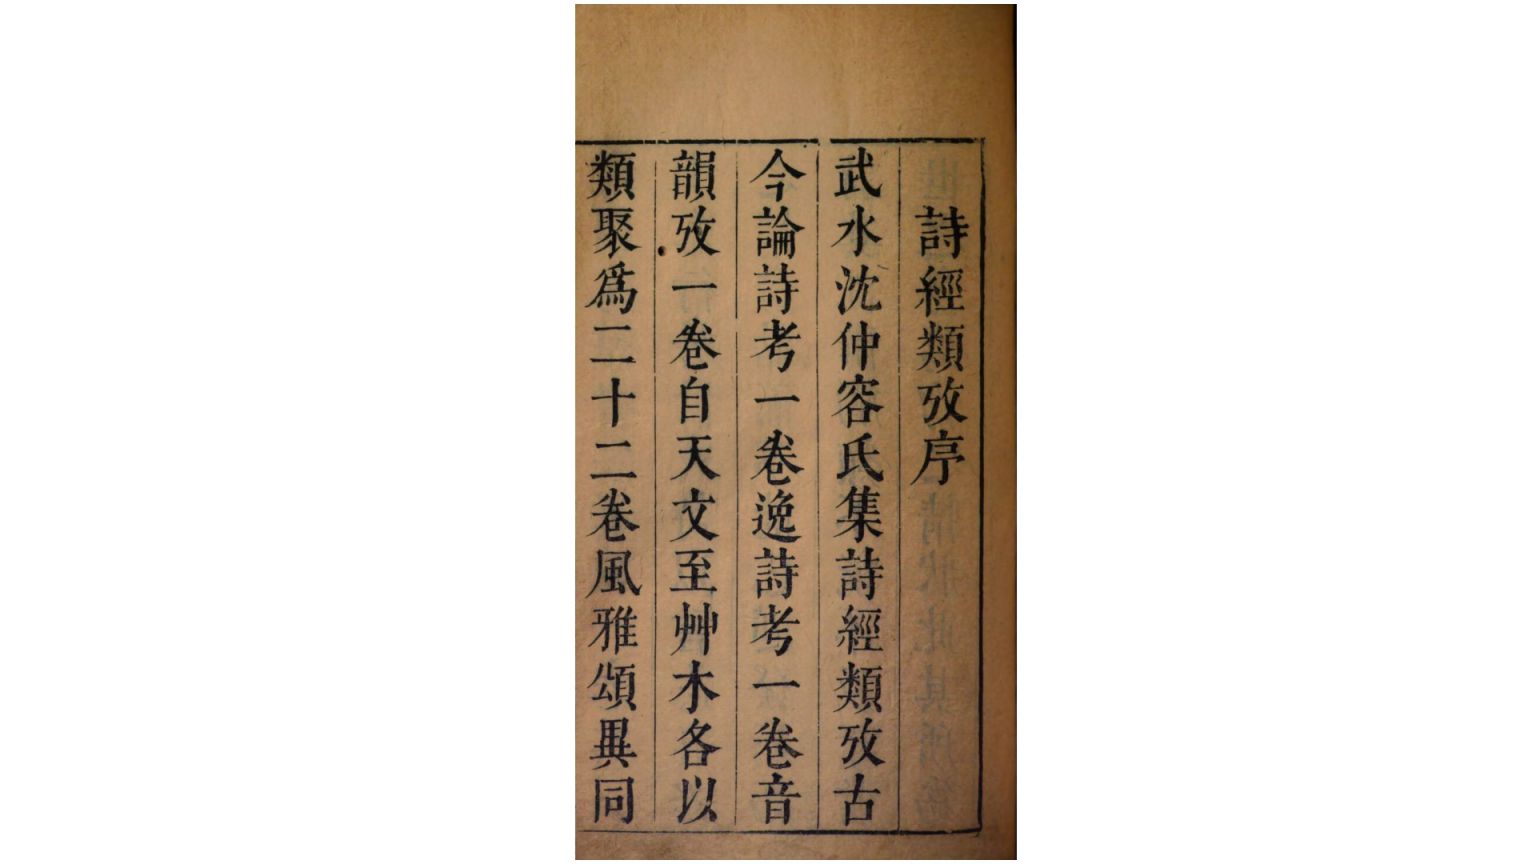 詩經類攷序
武水沈仲容氏集詩經類攷古
今論詩考一卷逸詩考一卷音
韻攷一卷自天文至艸木各以
類聚爲二十二卷風雅頌異同